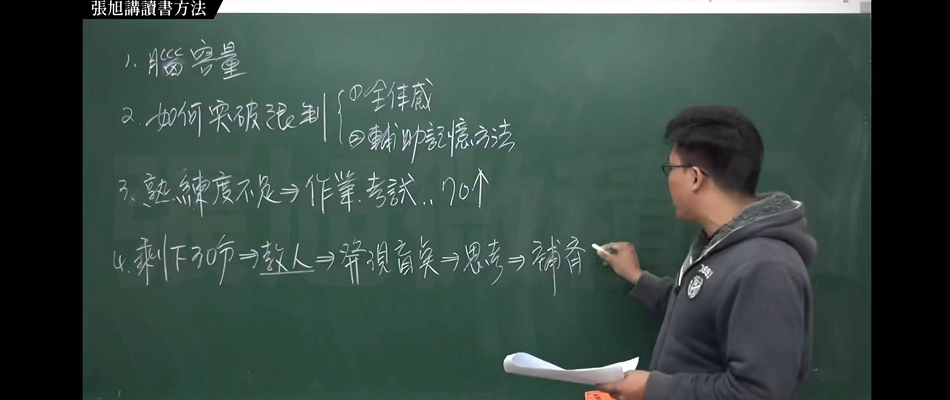 張旭講讀書方法
1. 腦容量
2. 如何突破限制 { ① 全体感
② 輔助記憶方法
3. 熟練度不足⇒作業.考試..70↑
4. 剩下30分⇒教人⇒發現盲矣⇒思考⇒補齊
1851